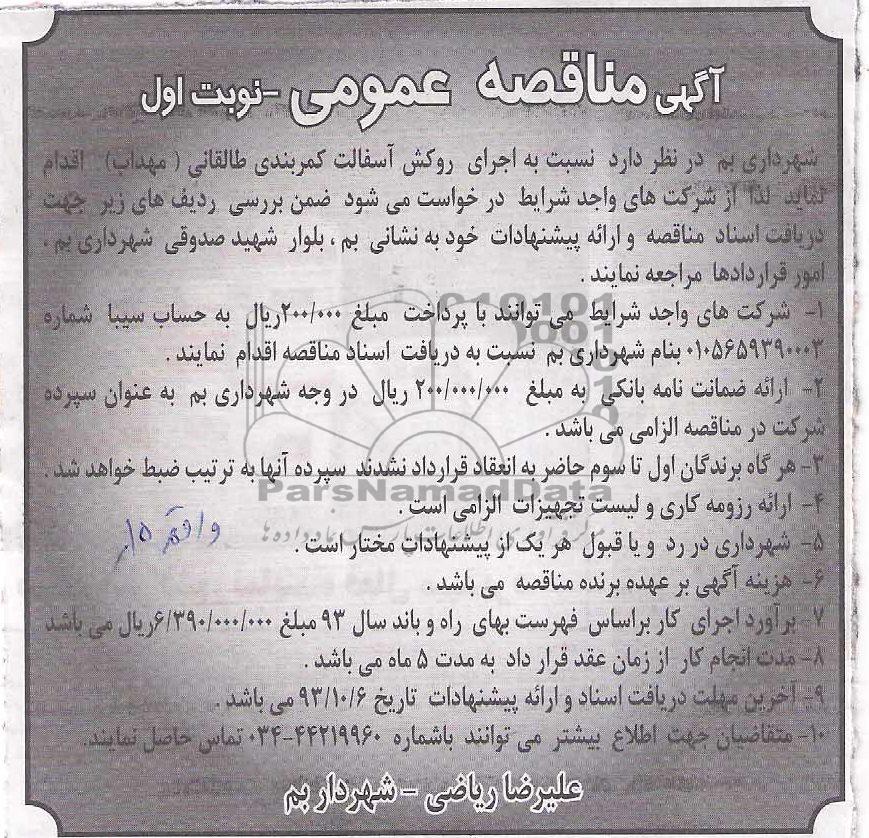 آگهی مناقصه عمومی -نوبت اول
شهرداری بم در نظر دارد نسبت به اجرای روکش آسفالت کمربندی طالقانی ( مهداب) اقدام
نماید لذا از شرکت های واجد شرایط در خواست می شود ضمن بررسی ردیف های زیر جهت
دریافت اسناد مناقصه و ارائه پیشنهادات خود به نشانی بم ، بلوار شهید صدوقی شهرداری بم ،
امور قراردادها مراجعه نمایند .
۱- شرکت های واجد شرایط می توانند با پرداخت مبلغ ۲۰۰/۰۰۰ریال به حساب سیبا شماره
۰۱۰۵۶۵۹۳۹۰۰۰۳ بنام شهرداری بم نسبت به دریافت اسناد مناقصه اقدام نمایند .
۲- ارائه ضمانت نامه بانکی به مبلغ ۲۰۰/۰۰۰/۰۰۰ ریال در وجه شهرداری بم به عنوان سپرده
شرکت در مناقصه الزامی می باشد .
۳- هر گاه برندگان اول تا سوم حاضر به انعقاد قرارداد نشدند سپرده آنها به ترتیب ضبط خواهد شد .
ParsNamadData
۴- ارائه رزومه کاری و لیست تجهیزات الزامی است .
۵- شهرداری در رد و یا قبول هر یک از پیشنهادات مختار است .
۶- هزینه آگهی بر عهده برنده مناقصه می باشد .
۷- برآورد اجرای کار براساس فهرست بهای راه و باند سال ۹۳ مبلغ ۶/۳۹۰/۰۰۰/۰۰۰ریال می باشد
۸- مدت انجام کار از زمان عقد قرار داد به مدت ۵ ماه می باشد .
۹- آخرین مهلت دریافت اسناد و ارائه پیشنهادات تاریخ ۹۳/۱۰/۶ می باشد .
۱۰- متقاضیان جهت اطلاع بیشتر می توانند باشماره ۴۴۲۱۹۹۶۰-۰۳۴ تماس حاصل نمایند.
علیرضا ریاضی - شهردار بم